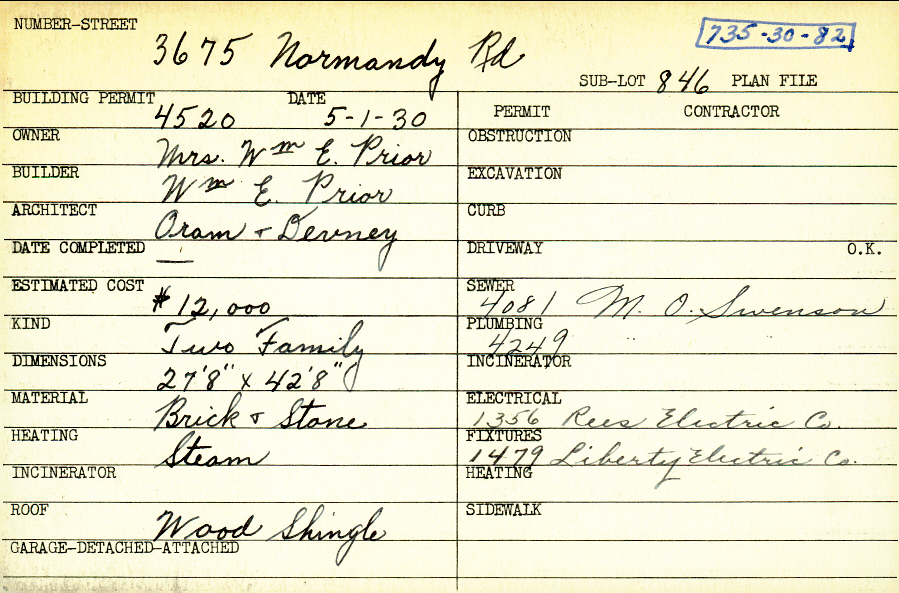 NUMBER-STREET
3675 Normandy Rd
735-30-82
SUB-LOT 846 PLAN FILE
BUILDING PERMIT DATE
4520 5-1-30
OWNER
Mrs. Wm E. Prior
BUILDER
Wm E. Prior
ARCHITECT
Oram + Devney
DATE COMPLETED
—
ESTIMATED COST
$12,000
KIND
Two Family
DIMENSIONS
27'8" x 42'8"
MATERIAL
Brick & Stone
HEATING
Steam
INCINERATOR
ROOF
Wood Shingle
GARAGE-DETACHED-ATTACHED
PERMIT CONTRACTOR
OBSTRUCTION
EXCAVATION
CURB
DRIVEWAY O.K.
SEWER
4081 M. O. Swenson
PLUMBING
4249 " "
INCINERATOR
ELECTRICAL
1356 Rees Electric Co.
FIXTURES
1479 Liberty Electric Co.
HEATING
SIDEWALK